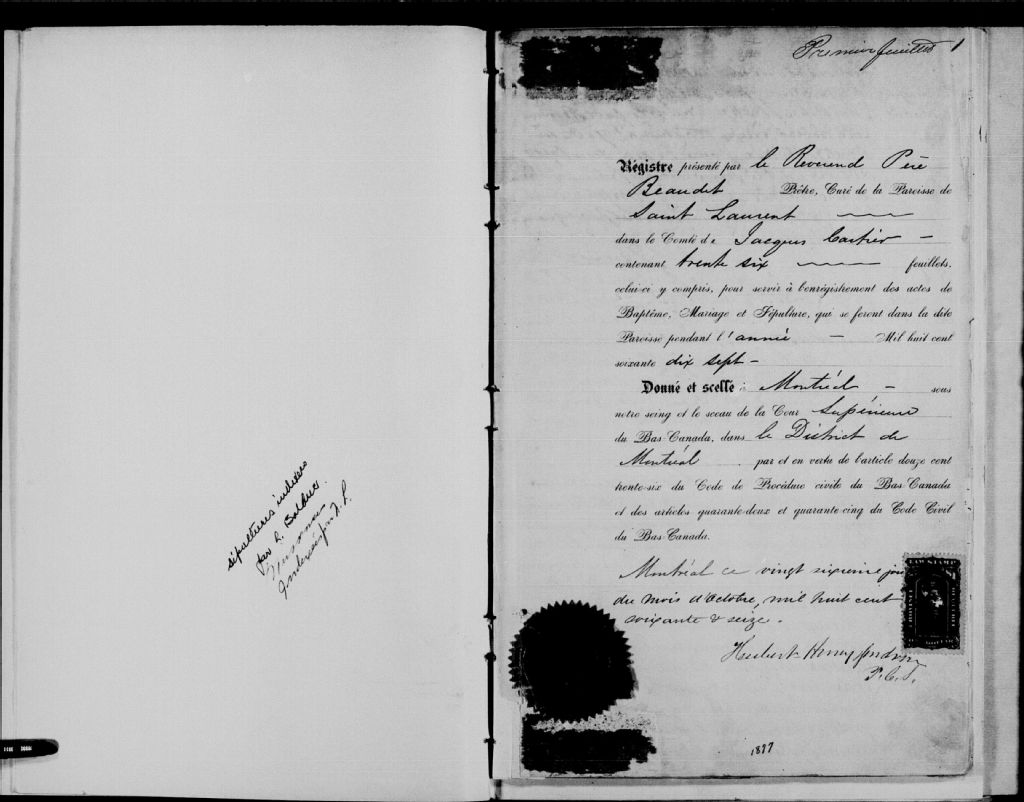 sépultures indexées
par R. Balduc.
Indexé par J. P.
Premier feuillet 1
Régistre présenté par le Reverend Père
Beaudet Prêtre, Curé de la Paroisse de
Saint Laurent
dans le Comté de Jacques Cartier –
contenant trente six feuillets,
celui-ci y compris, pour servir à l'enrégistrement des actes de
Baptême, Mariage et Sépulture, qui se feront dans la dite
Paroisse pendant l'année – Mil huit cent
soixante dix sept –
Donné et scellé à Montréal – sous
notre seing et le sceau de la Cour Supérieure
du Bas-Canada, dans le District de
Montréal par et en vertu de l'article douze cent
trente-six du Code de Procédure civile du Bas-Canada
et des articles quarante-deux et quarante-cinq du Code Civil
du Bas-Canada.
Montréal ce vingt sixieme jour
du mois d'Octobre, mil huit cent
soixante & seize.
LAW STAMP
P.C.S.
1877